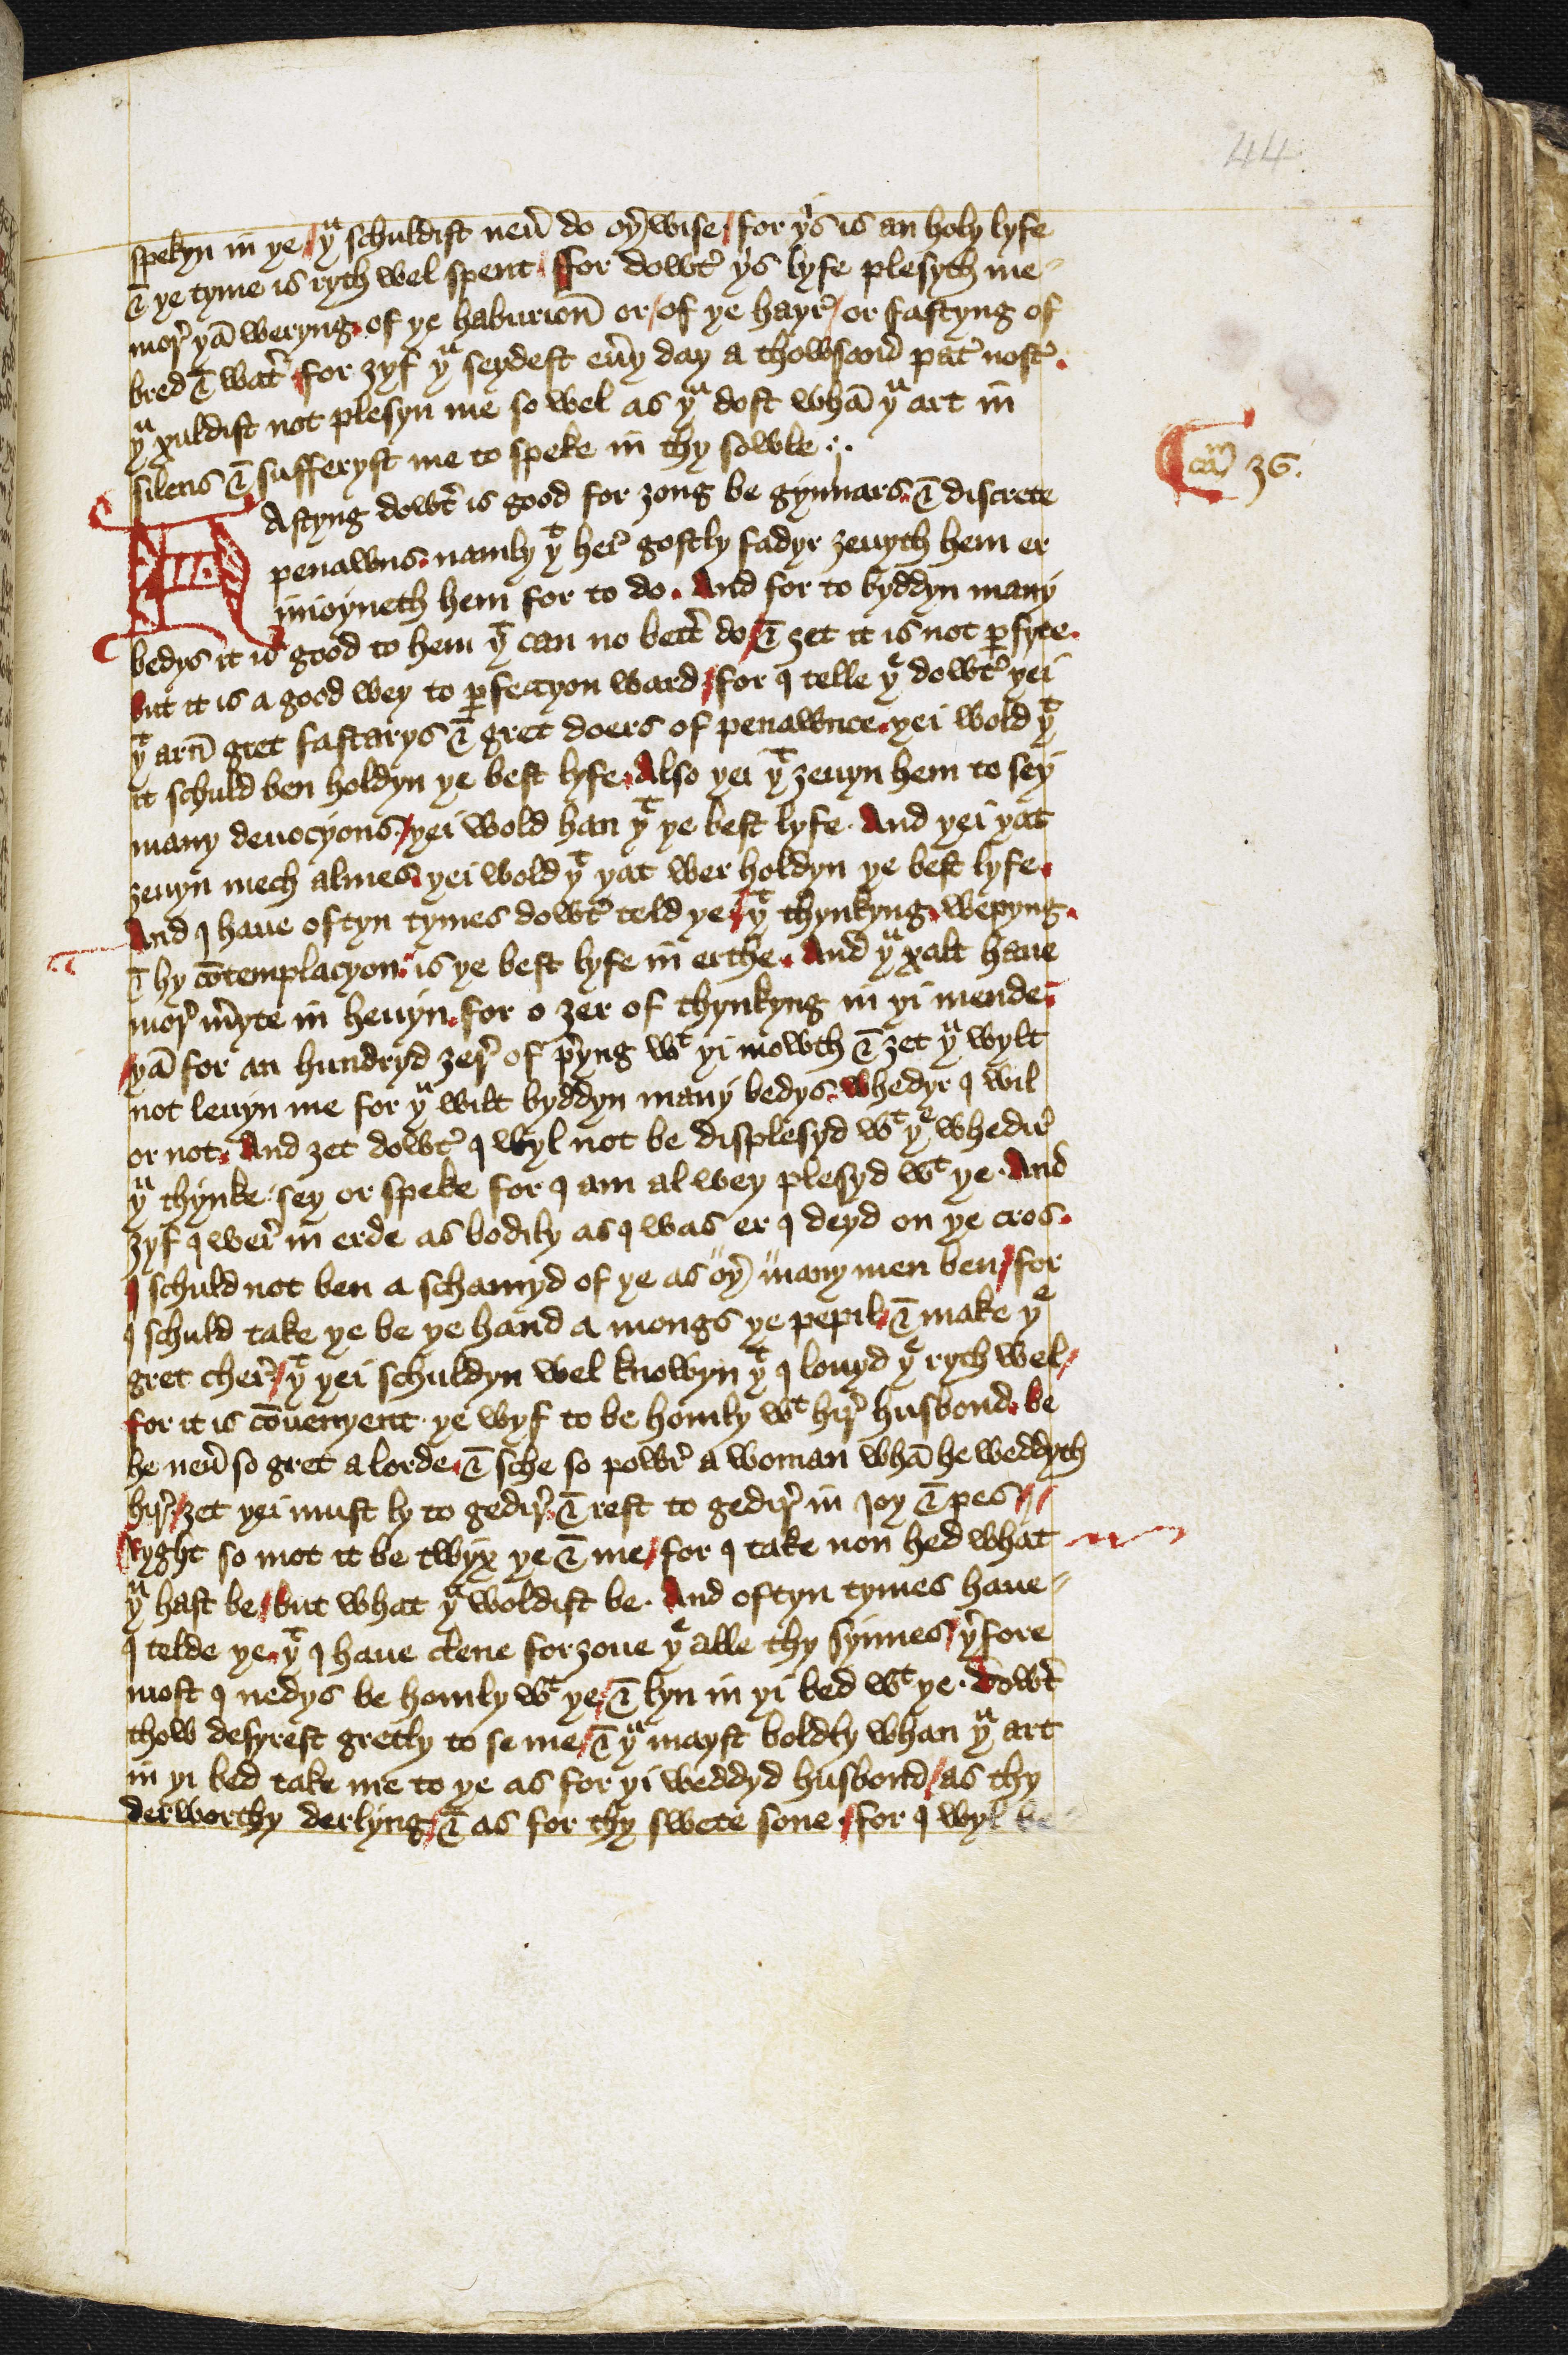 44
spekyn in ye / yu schuldist neu̅ do oỷ wise / for ỷs is an holy lyfe
& ye tyme is ryth wel spent. ffor dowt̉ ỷs lyfe plesyth me
mor̉ ya̅ weryng. of ye haburion̅ or / of ye hayr̉ / or fastyng of
bred & wat̉ / for zyf yu seydest eủy day a thowsand̉ pat̉ nost̉.
yu xuldist not plesyn me so wel as yu dost wha̅ yu art in
silens & sufferyst me to speke in thy sowle ..
ca̅m 36.
Fastyng dowt̉ is good for zong be gynnars. & discrete
penawns. namly yt her̉ gostly fadyr zeuyth hem er
inioyneth hem for to do. And for to byddyn many
bedys it is good to hem yt can no bett̉ do / & zet it is not p̱fyte.
But it is a good wey to p̱feccyon ward / for I telle ye dowt̉ yei
yt arn̅ gret fastarys & gret doers of penawnce. yei wold yt
it schuld ben holdyn ye best lyfe. Also yei yt zeuyn hem to sey
many deuocyons / yei wold han yt ye best lyfe. And yei yat
zeuyn mech almes. yei wold yt yat wer holdyn ye best lyfe.
And I haue oftyn tymes dowt̉ teld ye / yt thynkyng. wepyng.
& hy co̅templacyon. is ye best lyfe in erthe. And yu xalt haue
mor̉ m̉yte in heuyn. for o zer of thynkyng in yi mende
/ ya̅ for an hundryd zer̉ of p̉yng wt yi mowth & zet yu wylt
not leuyn me for yu wilt byddyn many bedys. whedyr I wil
or not. And zet dowt̉ I wyl not be displesyd wt ye whedir̉
yu thynke. sey or speke for I am al wey plesyd wt ye. And
zyf I wer̉ in erde as bodily as I was er I deyd on ye cros.
I schuld not ben a schamyd of ye as " oỷ " many men ben / for
I schuld take ye be ye hand a mongs ye pepil / & make ye
gret cher̉ / yt yei schuldyn wel knowyn yt I louyd ye ryth wel /
for it is co̅uenyent. ye wyf to be homly wt hir̉ husbond. be
he neu̅ so gret a lorde. & sche so powr̉ a woman wha̅ he weddyth
hir̉ / zet yei must ly to gedir̉. & rest to gedir̉ in Joy & pes //
Ryght so mot it be twyx ye & me / for I take non hed what
yu hast be / but what yu woldist be. And oftyn tymes haue
I telde ye. yt I haue clene forzoue ye alle thy synnes / ỷfore
most I nedys be homly wt ye / & lyn in yi bed wt ye. Dowt̉
thow desyrest gretly to se me / & yu mayst boldly whan yu art
in yi bed take me to ye as for yi weddyd husbond / as thy
derworthy derlyng / & as for thy swete sone / for I wyl be